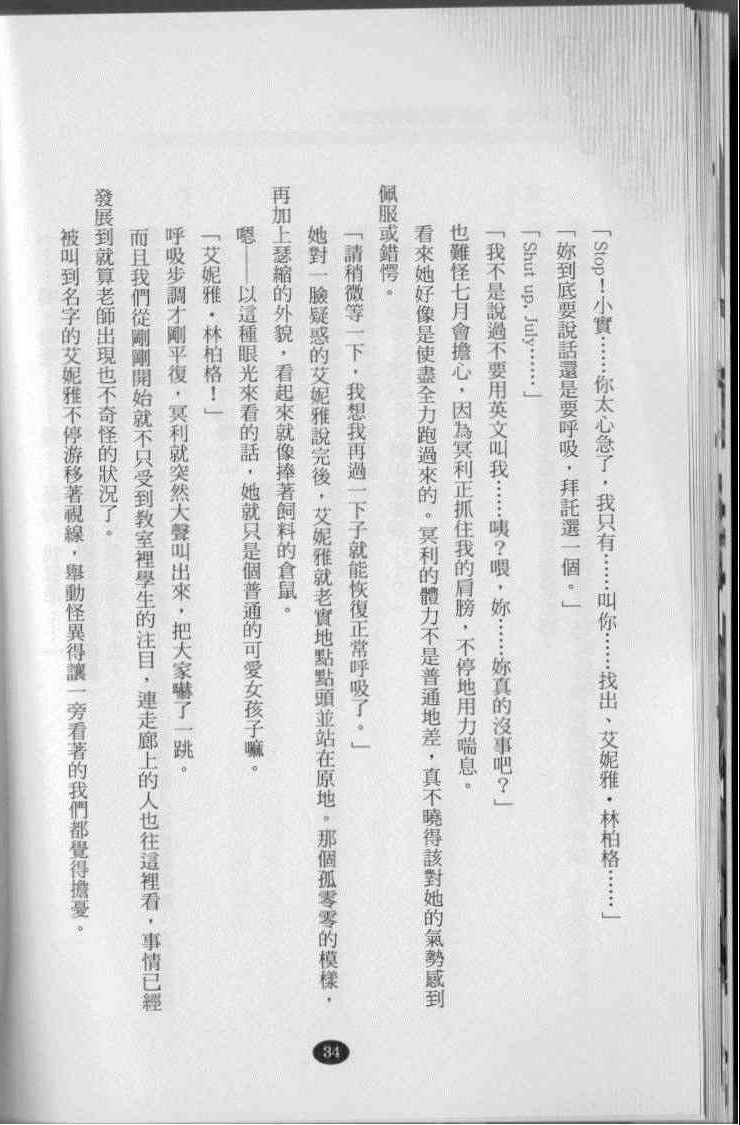 「Stop！小實……你太心急了，我只有……叫你……找出、艾妮雅・林柏格……」
「妳到底要說話還是要呼吸，拜託選一個。」
「Shut up, July……」
「我不是說過不要用英文叫我……咦？喂，妳……妳真的沒事吧？」
也難怪七月會擔心，因為冥利正抓住我的肩膀，不停地用力喘息。
看來她好像是使盡全力跑過來的。冥利的體力不是普通地差，真不曉得該對她的氣勢感到
佩服或錯愕。
「請稍微等一下，我想我再過一下子就能恢復正常呼吸了。」
她對一臉疑惑的艾妮雅說完後，艾妮雅就老實地點點頭並站在原地。那個孤零零的模樣，
再加上瑟縮的外貌，看起來就像捧著飼料的倉鼠。
嗯——以這種眼光來看的話，她就只是個普通的可愛女孩子嘛。
「艾妮雅・林柏格！」
呼吸步調才剛平復，冥利就突然大聲叫出來，把大家嚇了一跳。
而且我們從剛剛開始就不只受到教室裡學生的注目，連走廊上的人也往這裡看，事情已經
發展到就算老師出現也不奇怪的狀況了。
被叫到名字的艾妮雅不停游移著視線，舉動怪異得讓一旁看著的我們都覺得擔憂。
34